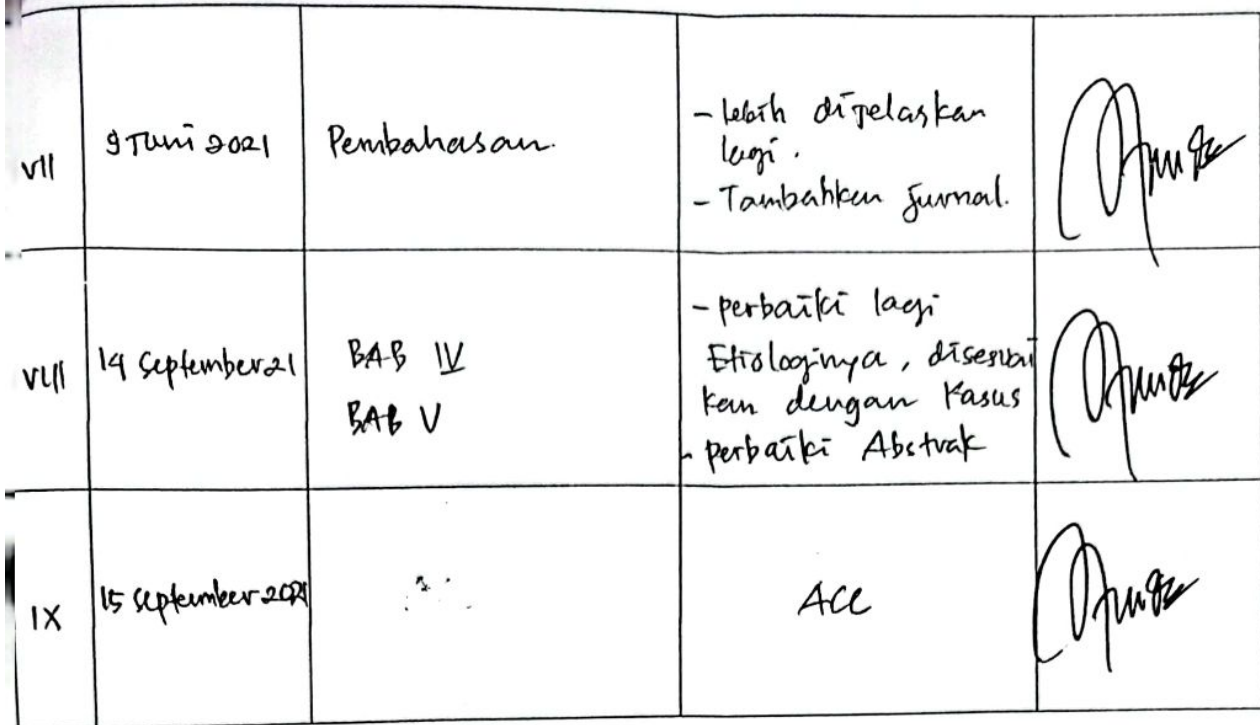 VII
9 Juni 2021
Pembahasan.
- lebih dijelaskan
lagi.
- Tambahkan Jurnal.
VIII
14 September 21
BAB IV
BAB V
- perbaiki lagi
Etiologinya, disesuai
kan dengan Kasus
- perbaiki Abstrak
IX
15 September 2021
ACC